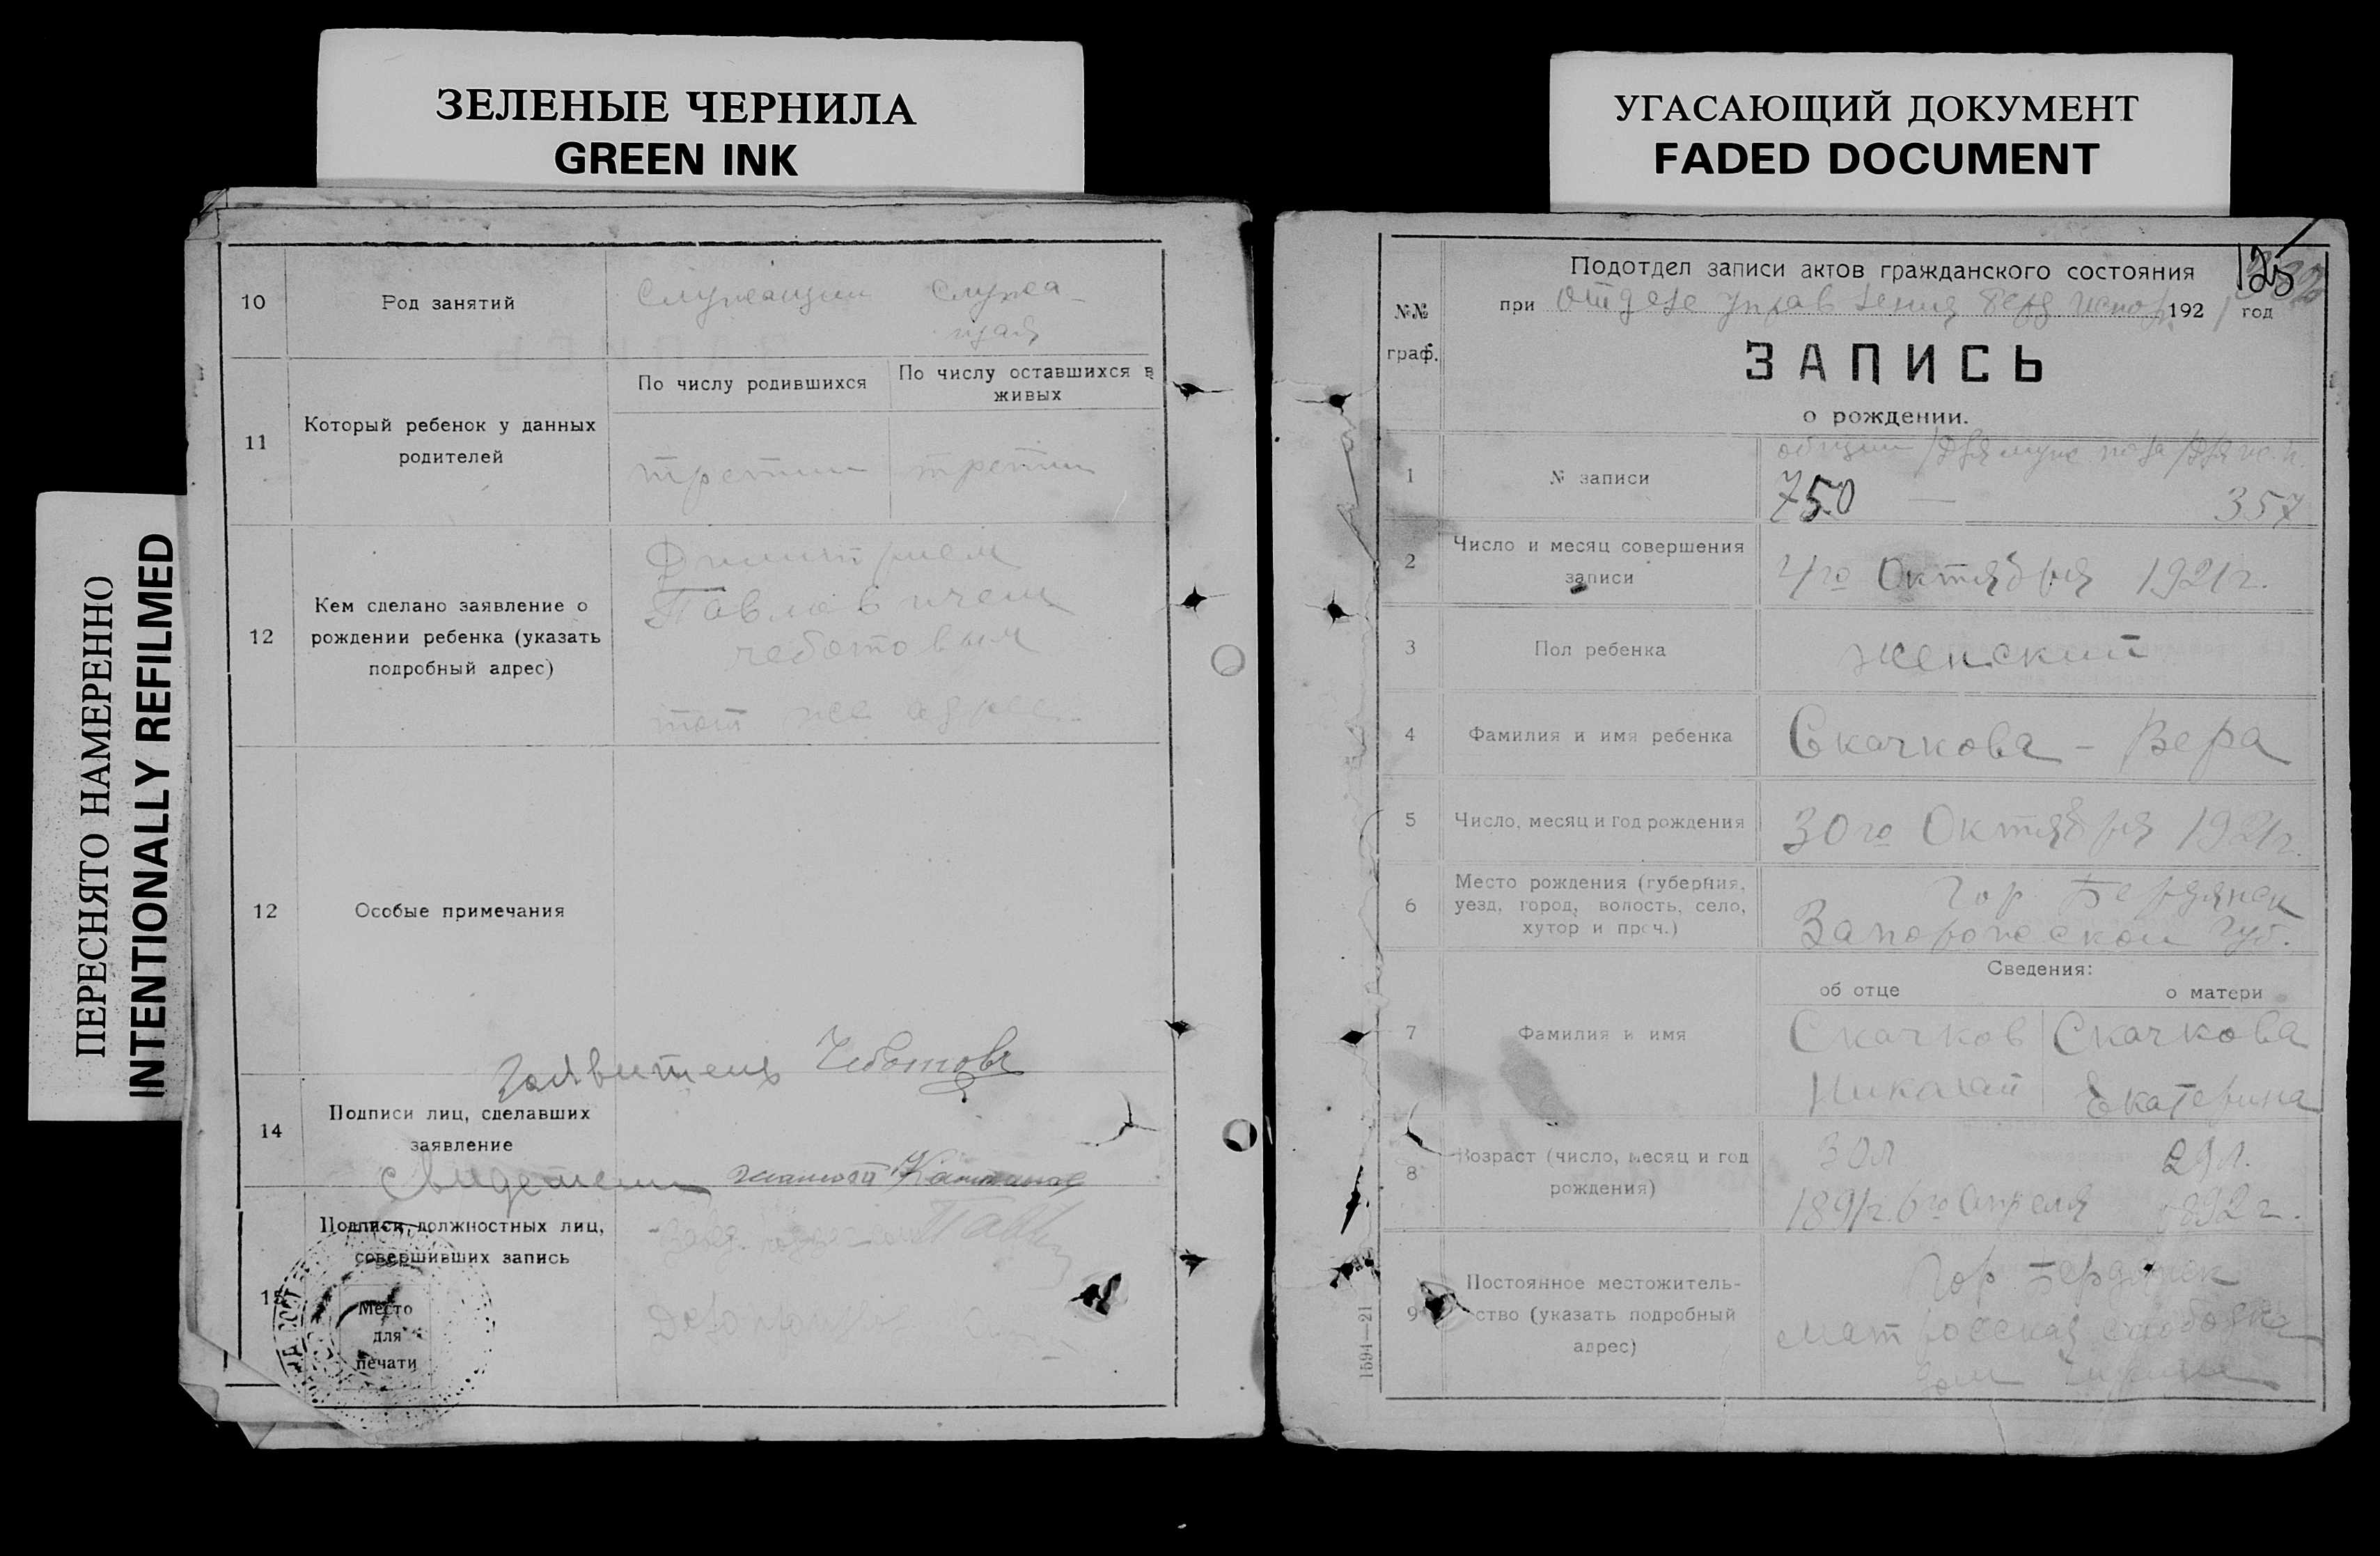 ЗЕЛЕНЫЕ ЧЕРНИЛА
GREEN INK
УГАСАЮЩИЙ ДОКУМЕНТ
FADED DOCUMENT
ПЕРЕСНЯТО НАМЕРЕННО
INTENTIONALLY REFILMED
10
Род занятий
Служащий
Служа-
щая
11
Который ребенок у данных
родителей
По числу родившихся
По числу оставшихся в
живых
третий
третий
12
Кем сделано заявление о
рождении ребенка (указать
подробный адрес)
Павловичем
Чеботовым
тот же адрес
12
Особые примечания
Чеботов
14
Подписи лиц, сделавших
заявление
Свидетели
Подписи должностных лиц,
совершивших запись
15
Место
для
печати
125
№№
граф.
Подотдел записи актов гражданского состояния
при Отделе управления Берд 1921 год
ЗАПИСЬ
о рождении.
1
№ записи
общий
750 — 357
2
Число и месяц совершения
записи
4го Октября 1921г.
3
Пол ребенка
женский
4
Фамилия и имя ребенка
Скачкова – Вера
5
Число, месяц и год рождения
30го Октября 1921г.
6
Место рождения (губерния,
уезд, город, волость, село,
хутор и проч.)
Гор. Бердянск
Запорожской Губ.
Сведения:
об отце
о матери
7
Фамилия и имя
Скачков
Николай
Скачкова
Екатерина
8
Возраст (число, месяц и год
рождения)
30л
29л.
1891г. 6го Апреля
1892г.
9
Постоянное местожитель-
ство (указать подробный
адрес)
Гор Бердянск
Матросская слободка
дом
1594—21